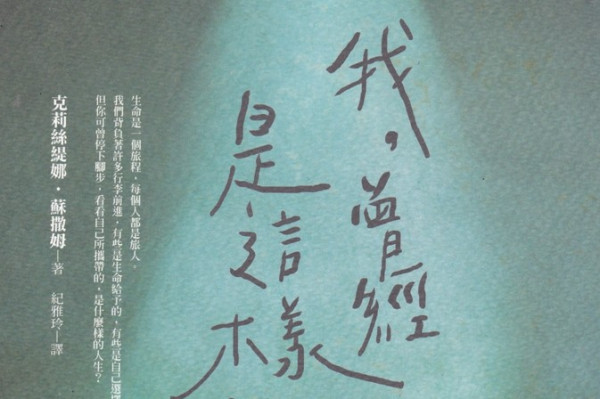 我，曾經
是這樣
生命是一個旅程，每個人都是旅人。
我們背負著許多行李前進，有些是生命給予的，有些是自己選擇
但你可曾停下腳步，看看自己所攜帶的，是什麼樣的人生？
克莉絲緹娜・蘇撒姆─著　紀雅玲─譯